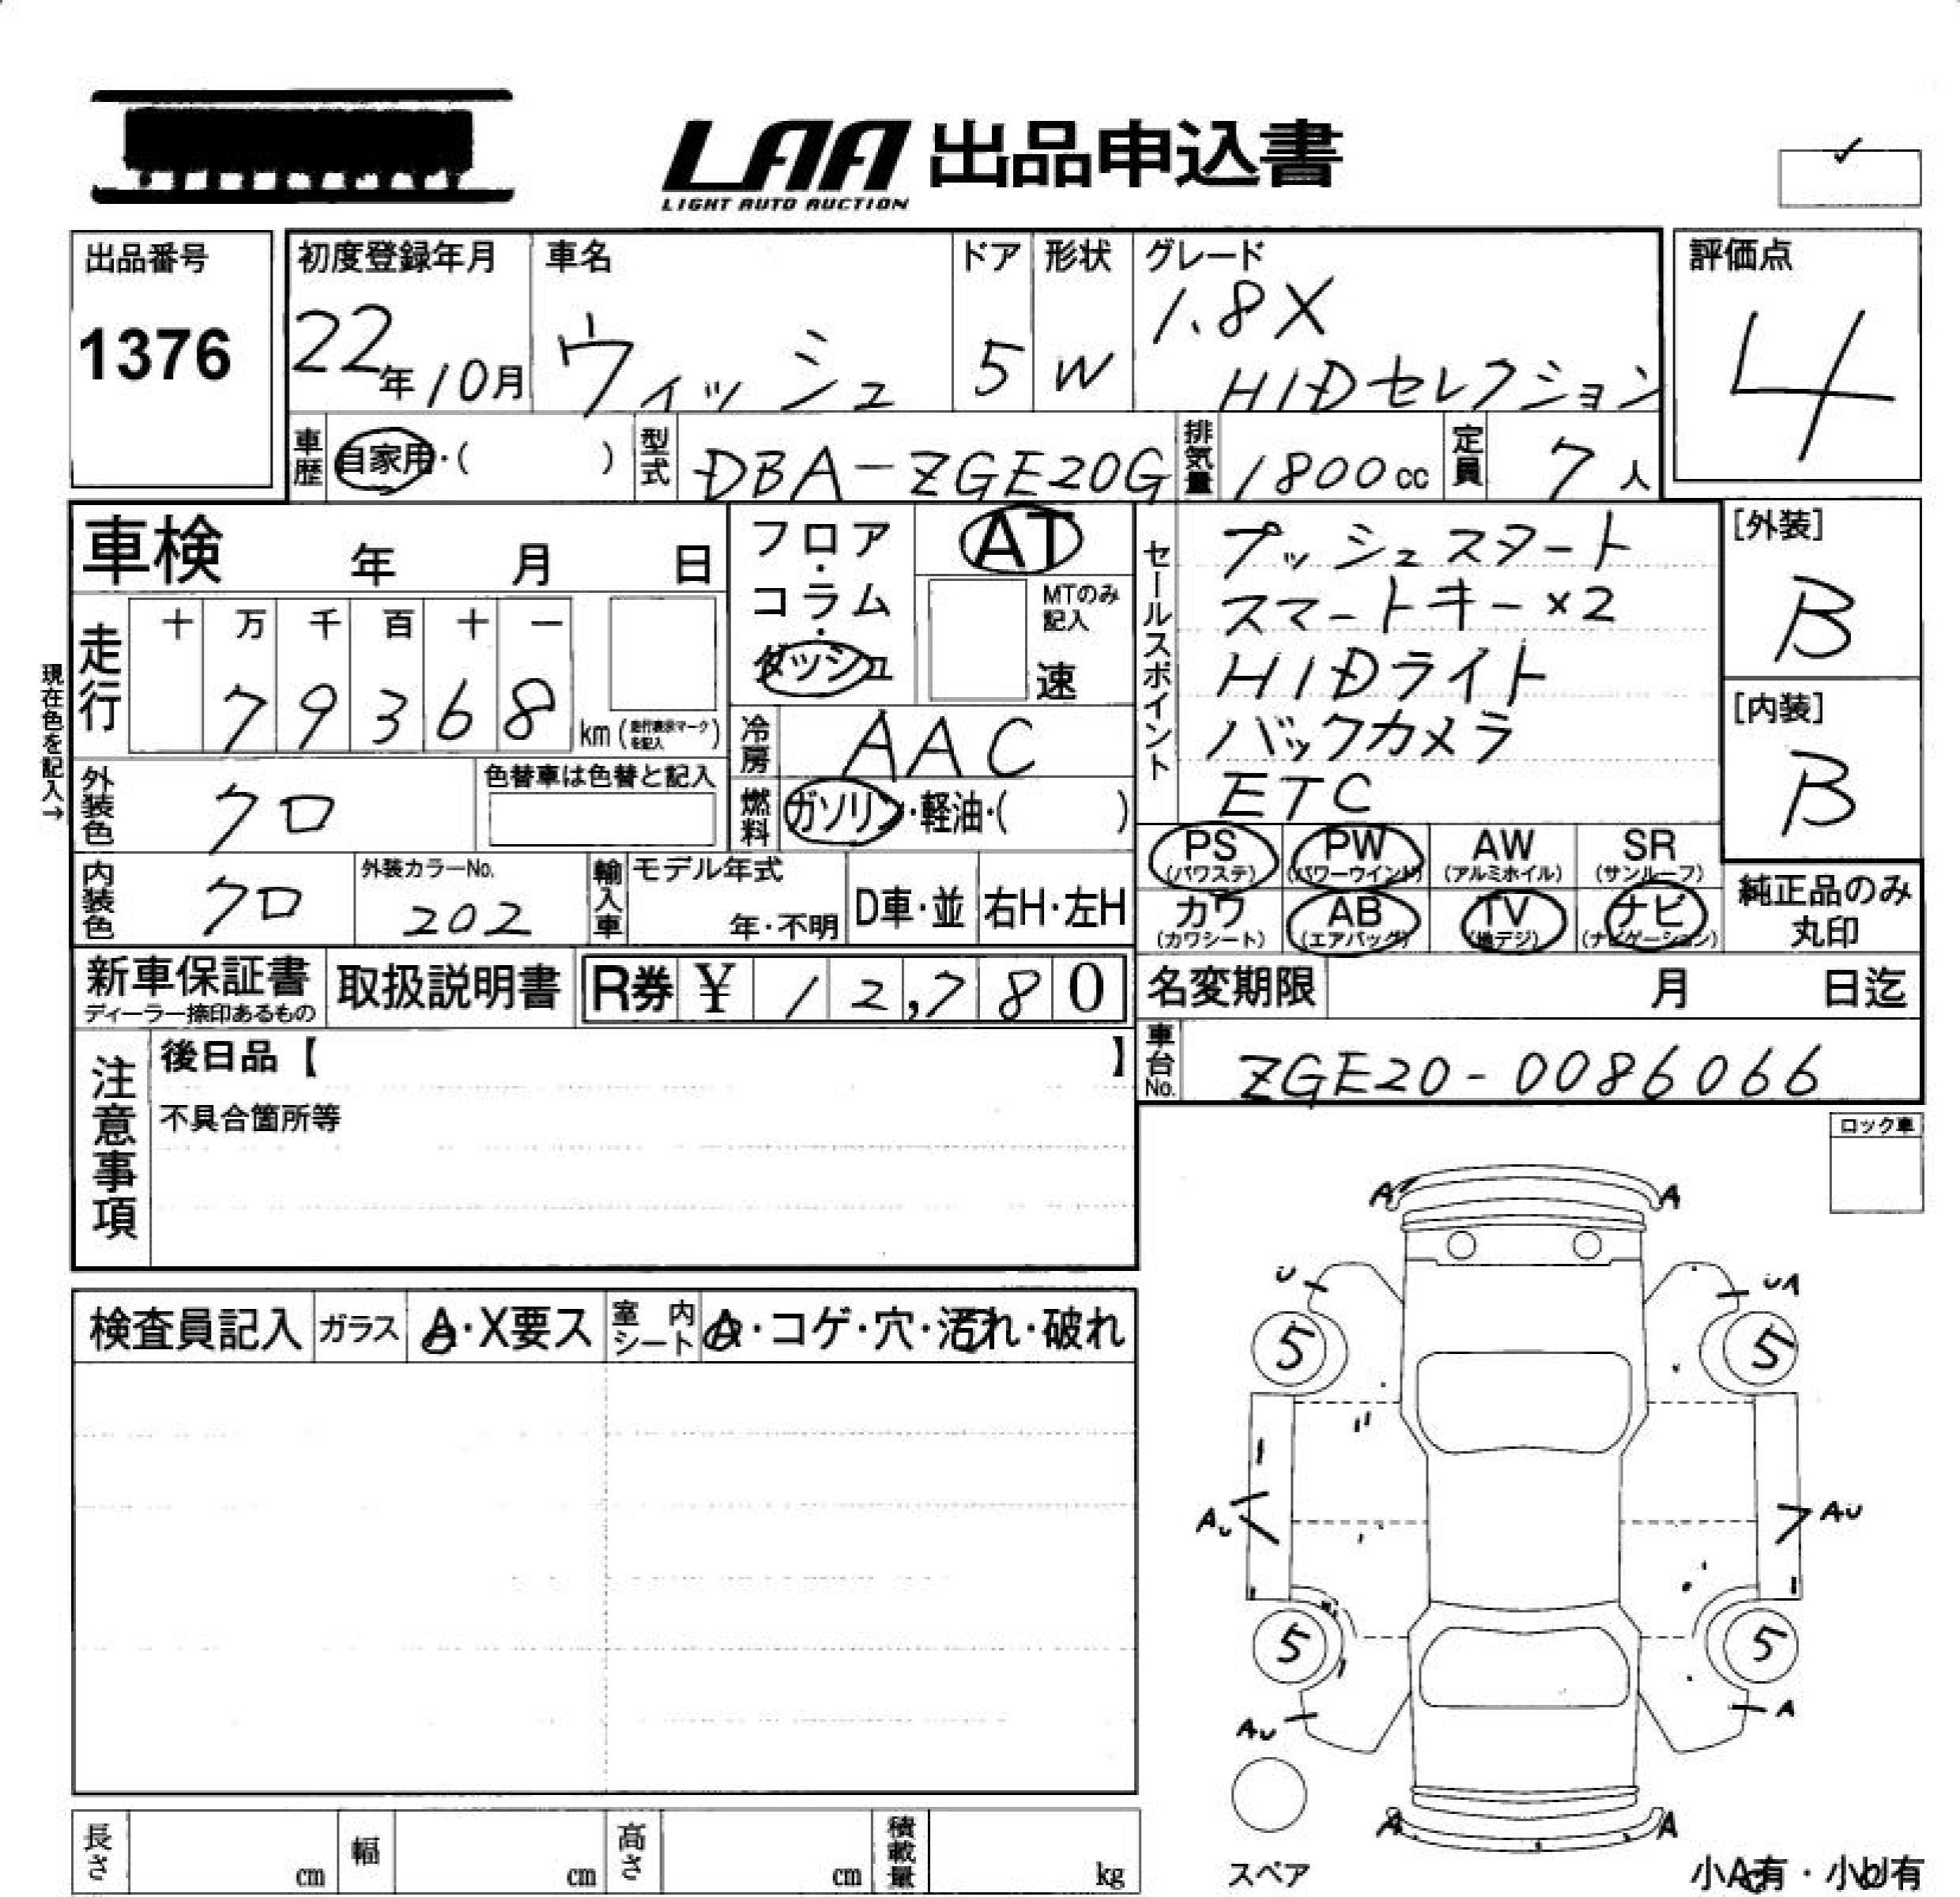 LAA 出品申込書
LIGHT AUTO AUCTION
出品番号
1376
初度登録年月
22年10月
車名
ウィッシュ
ドア
5
形状
W
グレード
1.8X
HIDセレクション
評価点
4
車歴
自家用・( )
型式
DBA-ZGE20G
排気量
1800cc
定員
7人
車検 年 月 日
フロア・
コラム・
ダッシュ
AT
MTのみ
記入
速
セールスポイント
プッシュスタート
スマートキー×2
HIDライト
バックカメラ
ETC
[外装]
B
[内装]
B
現在色を記入→
走行
十 万 千 百 十 一
7 9 3 6 8
km (走行表示マークを記入)
冷房
AAC
外装色
クロ
色替車は色替と記入
燃料
ガソリン・軽油・( )
PS
(パワステ)
PW
(パワーウインド)
AW
(アルミホイル)
SR
(サンルーフ)
カワ
(カワシート)
AB
(エアバッグ)
TV
(地デジ)
ナビ
(ナビゲーション)
純正品のみ
丸印
内装色
クロ
外装カラーNo.
202
輸入車
モデル年式
年・不明
D車・並
右H・左H
新車保証書
ディーラー捺印あるもの
取扱説明書
R券 ¥ 12,780
名変期限 月 日迄
車台No.
ZGE20-0086066
注意事項
後日品【 】
不具合箇所等
ロック車
検査員記入
ガラス
A・X要ス
室内
シート
A・コゲ・穴・汚れ・破れ
A A
U UA
5 5
AU AU
5 5
AU A
A A
スペア
小A有・小U有
長さ cm
幅 cm
高さ cm
積載量 kg